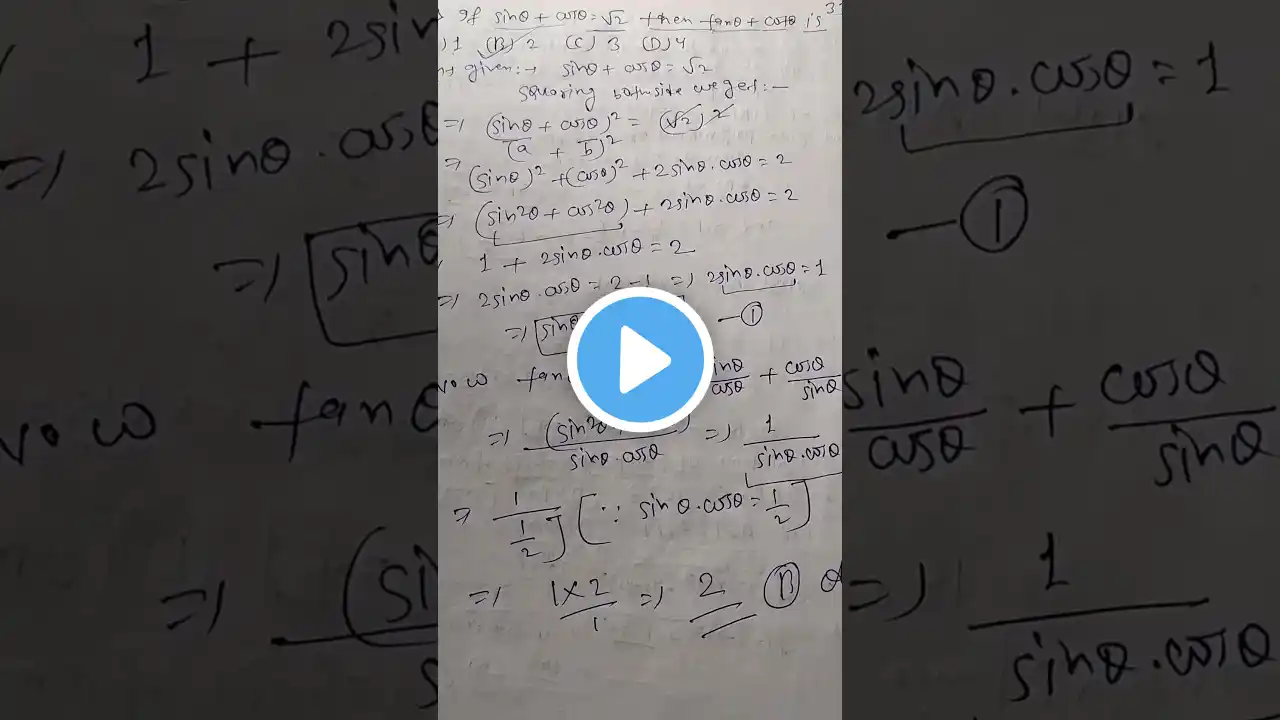 If sinθ + cosθ = √2 then tanθ + cotθ is
) 1 (B) 2 (C) 3 (D) 4
given:→ sinθ + cosθ = √2
Squaring bothside we get:—
=> (sinθ + cosθ)² = (√2)²
(a + b)²
=> (sinθ)² + (cosθ)² + 2sinθ.cosθ = 2
=> (sin²θ + cos²θ) + 2sinθ.cosθ = 2
1 + 2sinθ.cosθ = 2
=> 2sinθ.cosθ = 2-1 => 2sinθ.cosθ = 1
=> sinθ — ①
Now tan sinθ/cosθ + cosθ/sinθ
=> (sin²θ )/sinθ.cosθ => 1/sinθ.cosθ
=> 1/1/2 [∵ sinθ.cosθ = 1/2]
=> 1×2/1 => 2 (B)